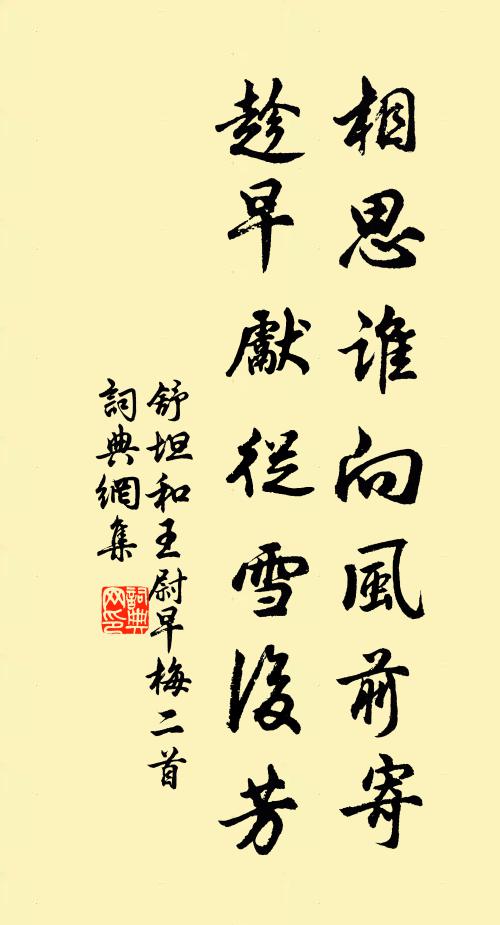 相思誰向風前寄
趁早獻從雪後芳
舒坦和王尉早梅二首
詞典網集
詞典
网印